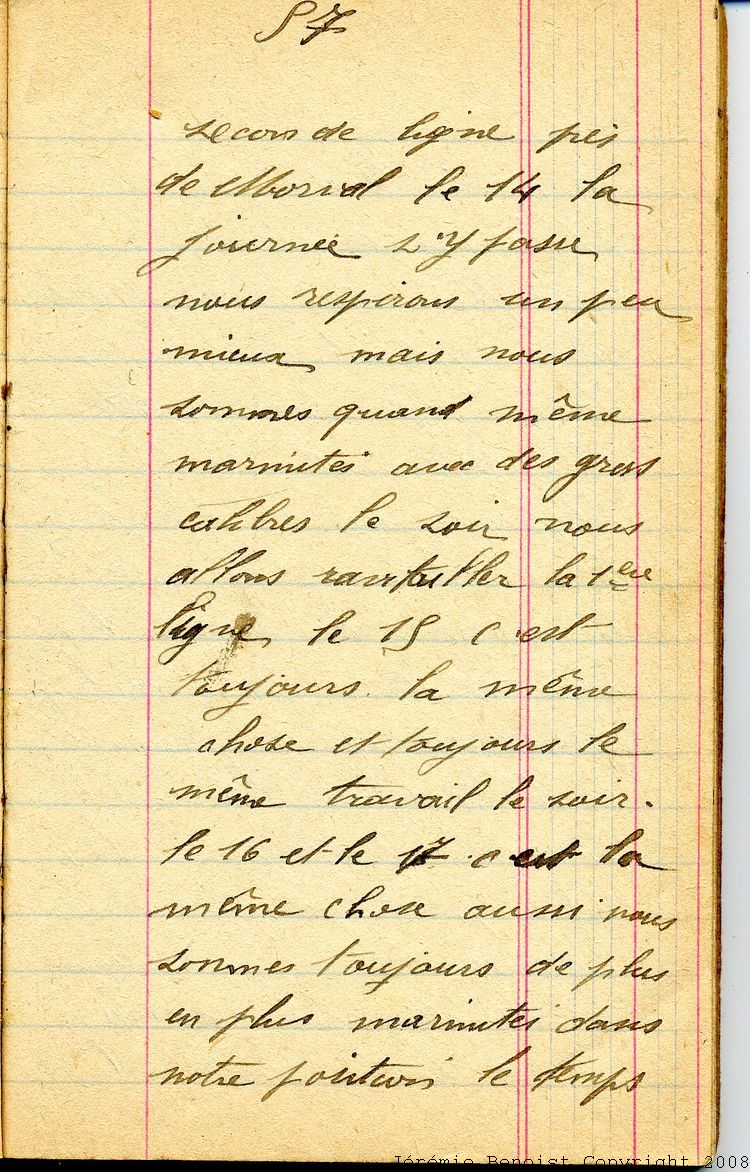 57
seconde ligne près
de Morval le 14 la
journée s'y passe
nous respirons un peu
mieux mais nous
sommes quand même
marmités avec des gros
calibres le soir nous
allons ravitailler la 1ere
ligne le 15 c'est
toujours la même
chose et toujours le
même travail le soir.
le 16 et le 17 c'est la
même chose aussi nous
sommes toujours de plus
en plus marmités dans
notre position le temps
Jérémie Benoist Copyright 2008